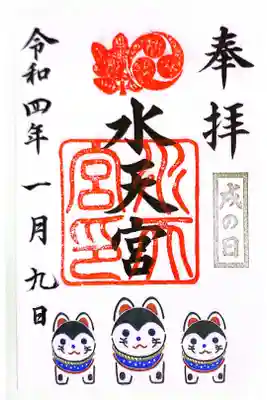 奉拝
戌の日
水天宮
水天宮印
令和四年一月九日